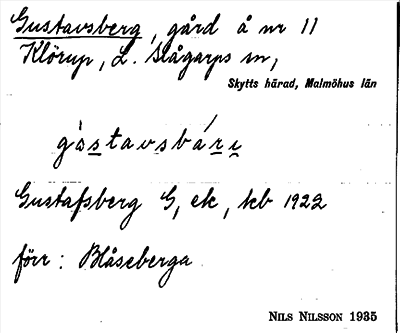 Gustavsberg, gård å nr 11
Klörup, L. Slågarps sn,
Skytts härad, Malmöhus län
gòstavsbári̯
Gustafsberg G, ek, kb 1922
förr: Blåseberga
NILS NILSSON 1935